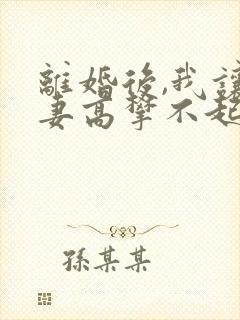 離婚後,我讓
妻高攀不起
孫某某